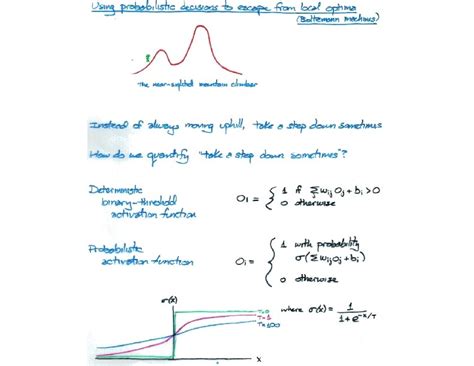 Using probabilistic decisions to escape from local optima
(Boltzmann machines)
The near-sighted mountain climber
Instead of always moving uphill, take a step down sometimes
How do we quantify "take a step down sometimes"?
Deterministic
binary-threshold
activation function
Oi = { 1 if Σwij Oj + bi > 0
0 otherwise
Probabilistic
activation function
Oi = { 1 with probability
σ(Σwij Oj + bi)
0 otherwise
σ(x)
T=0
T=1
T=100
x
where σ(x) = 1 / 1+e^-x/T